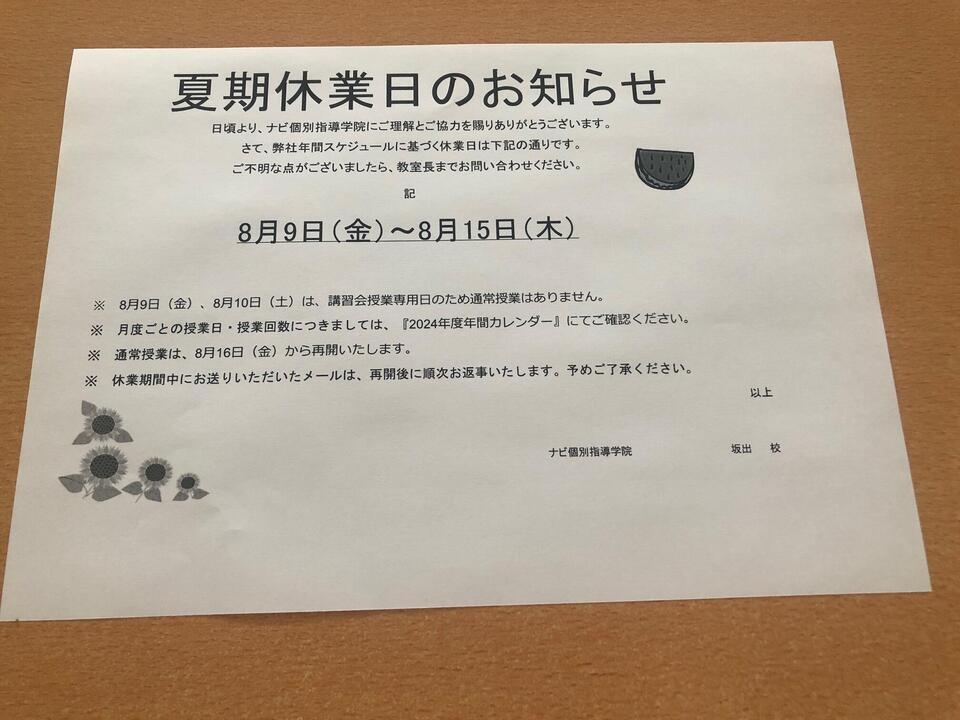 夏期休業日のお知らせ
日頃より、ナビ個別指導学院にご理解とご協力を賜りありがとうございます。
さて、弊社年間スケジュールに基づく休業日は下記の通りです。
ご不明な点がございましたら、教室長までお問い合わせください。
記
8月9日（金）～8月15日（木）
※ 8月9日（金）、8月10日（土）は、講習会授業専用日のため通常授業はありません。
※ 月度ごとの授業日・授業回数につきましては、『2024年度年間カレンダー』にてご確認ください。
※ 通常授業は、8月16日（金）から再開いたします。
※ 休業期間中にお送りいただいたメールは、再開後に順次お返事いたします。予めご了承ください。
以上
ナビ個別指導学院 坂出 校